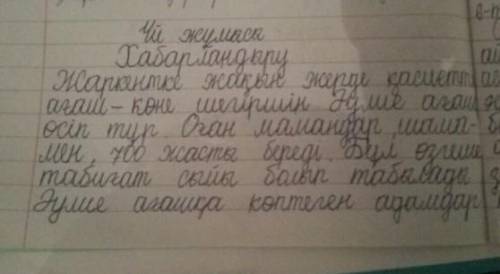 Үй жұмысы
Хабарландыру
Жаркентке жақын жерде қасиетті
ағаш – көне шегіршін Әулие ағаш
өсіп тұр. Оған мамандар шама-
мен 700 жасты береді. Бұл өзгеше
табиғат сыйы болып табылады
Әулие ағашқа көптеген адамдар